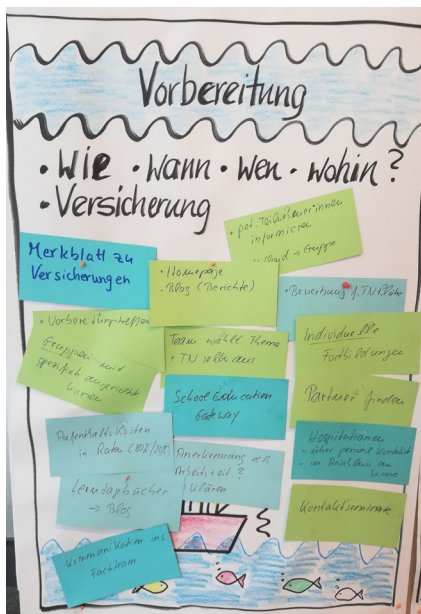 Vorbereitung
• Wie • wann • wen • wohin?
• Versicherung
• pot. Teilnehmer:innen
informieren
→ Gruppe
Merkblatt zu
Versicherungen
• Homepage
- Blog (Berichte)
• Bewerbung f. TN-Plätze
• Vorbereitungstreffen
Gruppen mit
spezifisch
Kursen
Team wählt Thema
+ TN selbst aus
Individuelle
Fortbildungen
School Education
Gateway
Partner finden
Aufenthaltskosten
in Raten (80%/20%)
Anerkennung als
Arbeitszeit?
klären
Hospitationen
- über personal Kontakt
- im Anschluss an
Kurse
Lerntagebücher
→ Blog
Kontaktseminare
Kommunikation ins
Fachteam